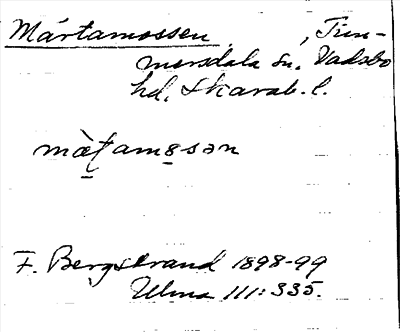 Mårtamossen, Tim-
mersdala sn. Vadsbo
hd. Skarab. l.
màt̯amo̱sən
F. Bergstrand 1898-99
Ulma 111:335.